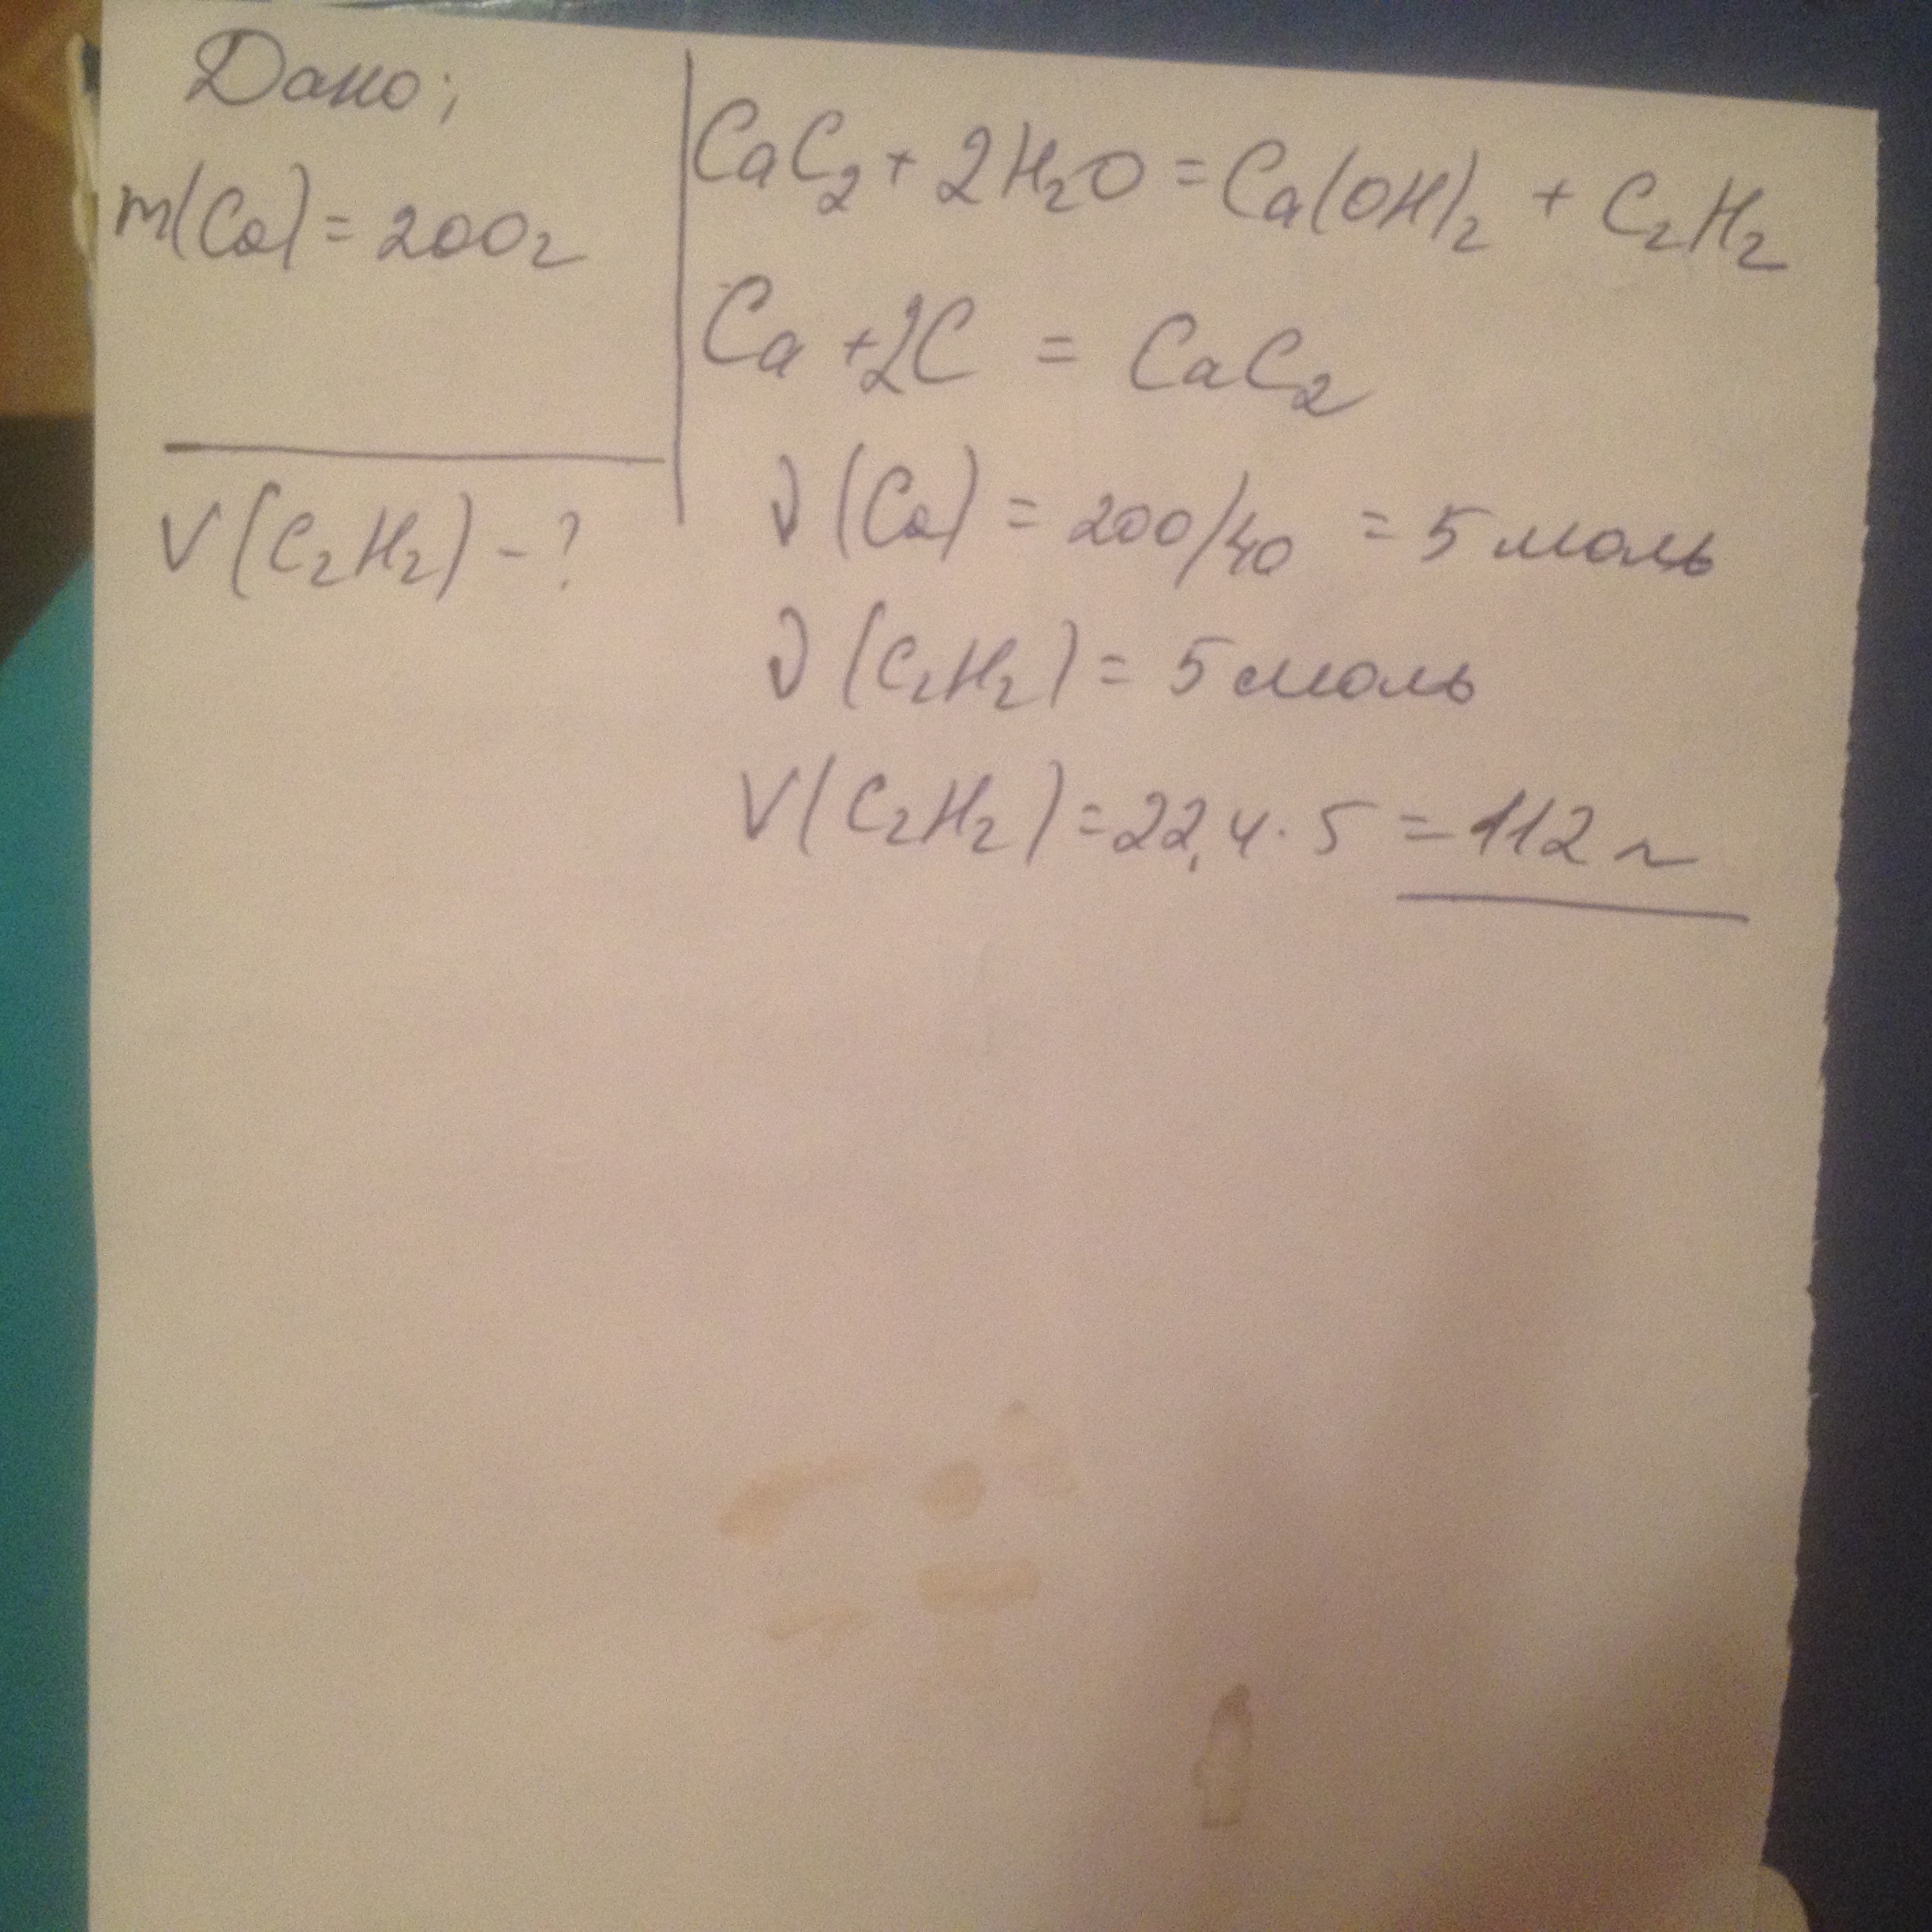 Дано;
m(Ca) = 200г
V(C₂H₂) - ?
CaC₂ + 2H₂O = Ca(OH)₂ + C₂H₂
Ca + 2C = CaC₂
ν(Ca) = 200/40 = 5 моль
ν(C₂H₂) = 5 моль
V(C₂H₂) = 22,4 · 5 = 112 л